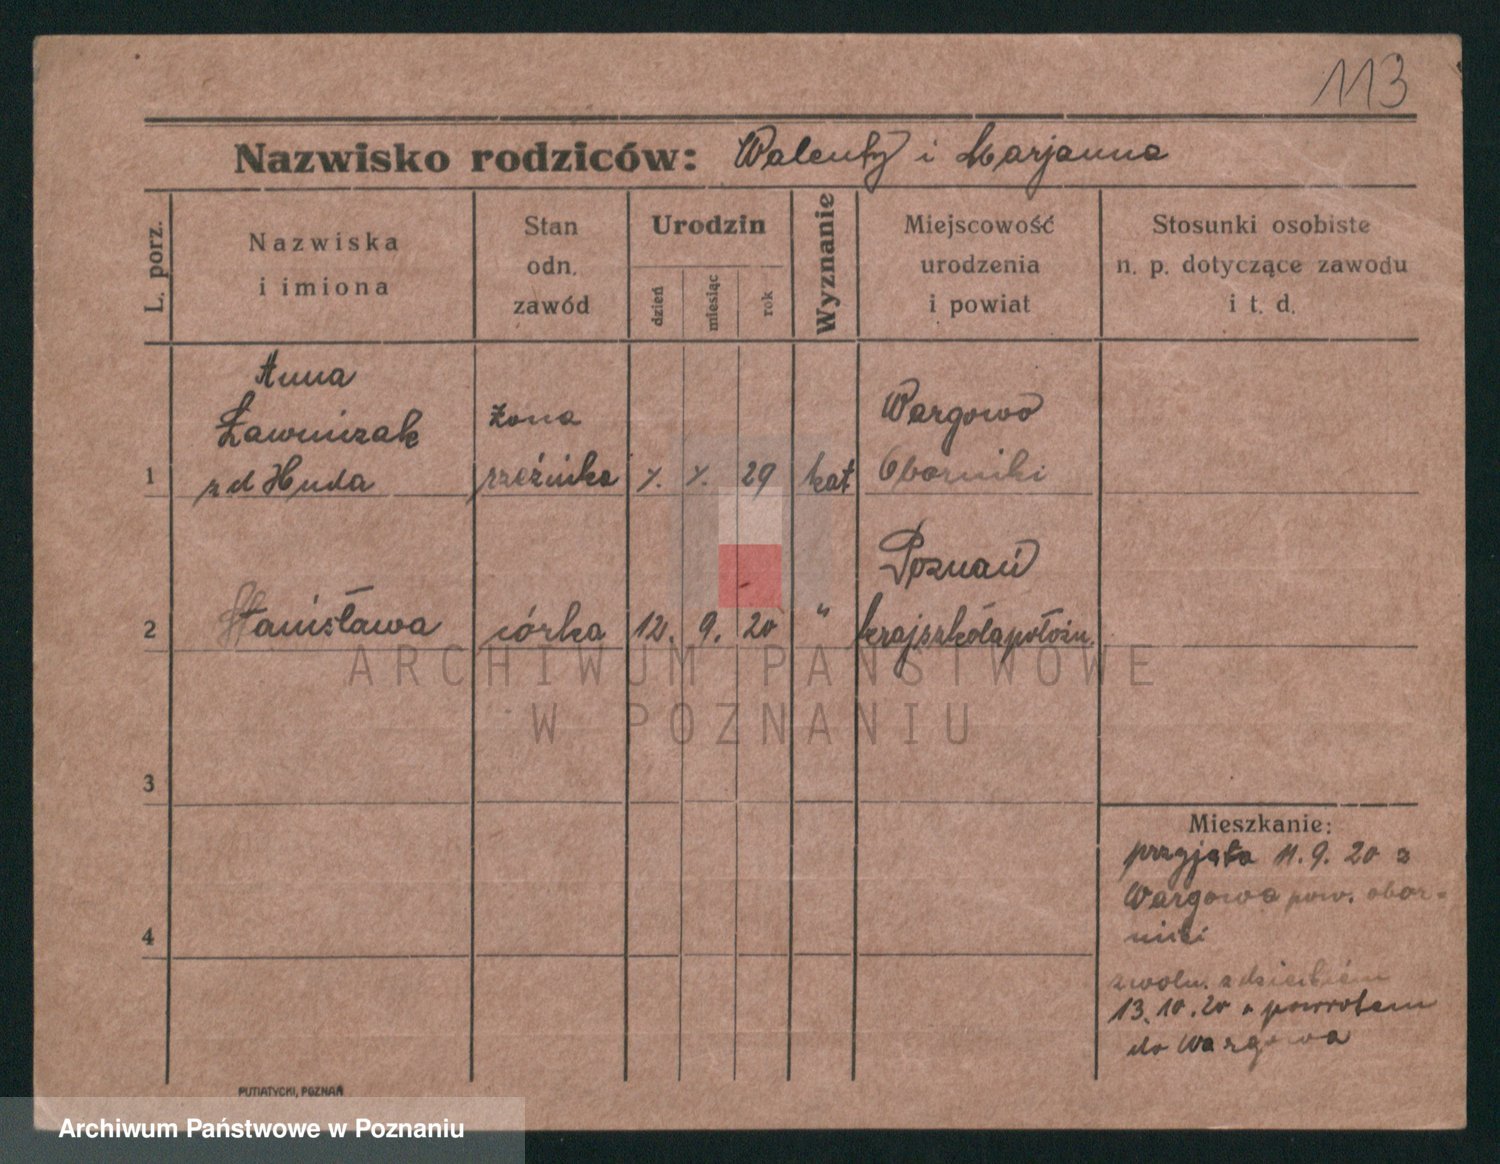 113
Nazwisko rodziców: Walenty i Marjanna
L. porz.
Nazwiska
i imiona
Stan
odn.
zawód
Urodzin
dzień
miesiąc
rok
Wyznanie
Miejscowość
urodzenia
i powiat
Stosunki osobiste
n. p. dotyczące zawodu
i t. d.
Anna
Ławniczak
zd Huda
1
żona
rzeźnika
29
kat
Wargowo
Oborniki
2
Stanisława
córka
12. 9. 20
"
Poznań
krajszkołapołożn.
ARCHIWUM PAŃSTWOWE
W POZNANIU
3
4
Mieszkanie:
przyjęta 11.9.20 z
Wargowa pow. obor-
niki
zwoln. z dzieckiem
13.10.20 z powrotem
do Wargowa
PUTIATYCKI, POZNAŃ
Archiwum Państwowe w Poznaniu